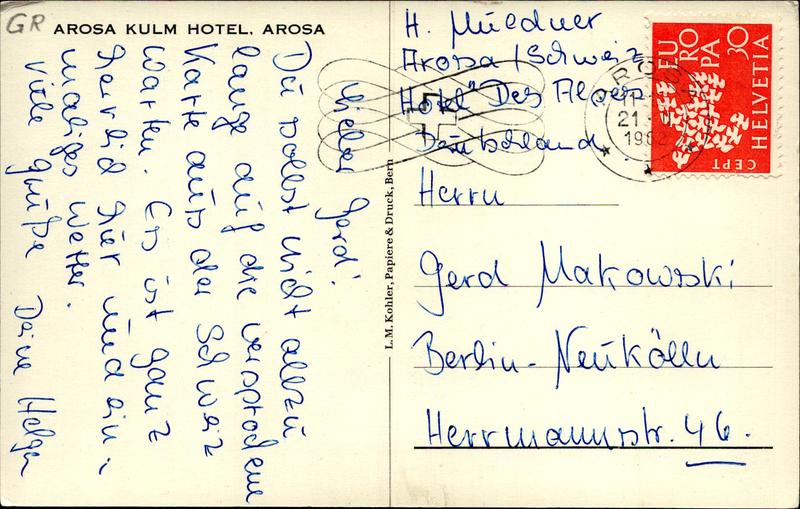 GR
AROSA KULM HOTEL, AROSA
Lieber Gerd!
Du sollst nicht allzu
lange auf die versprochene
Karte aus der Schweiz
warten. Es ist ganz
herrlich hier und ein-
maliges Wetter.
Viele Grüße Deine Helga
L. M. Kohler, Papiere & Druck, Bern
H. Muldner
Arosa / Schweiz
Hotel "Des Alpes
Deutschland
Herrn
Gerd Makowski
Berlin-Neukölln
Herrmannstr. 46.
AROSA
21.
1962
EUROPA 30
HELVETIA
CEPT